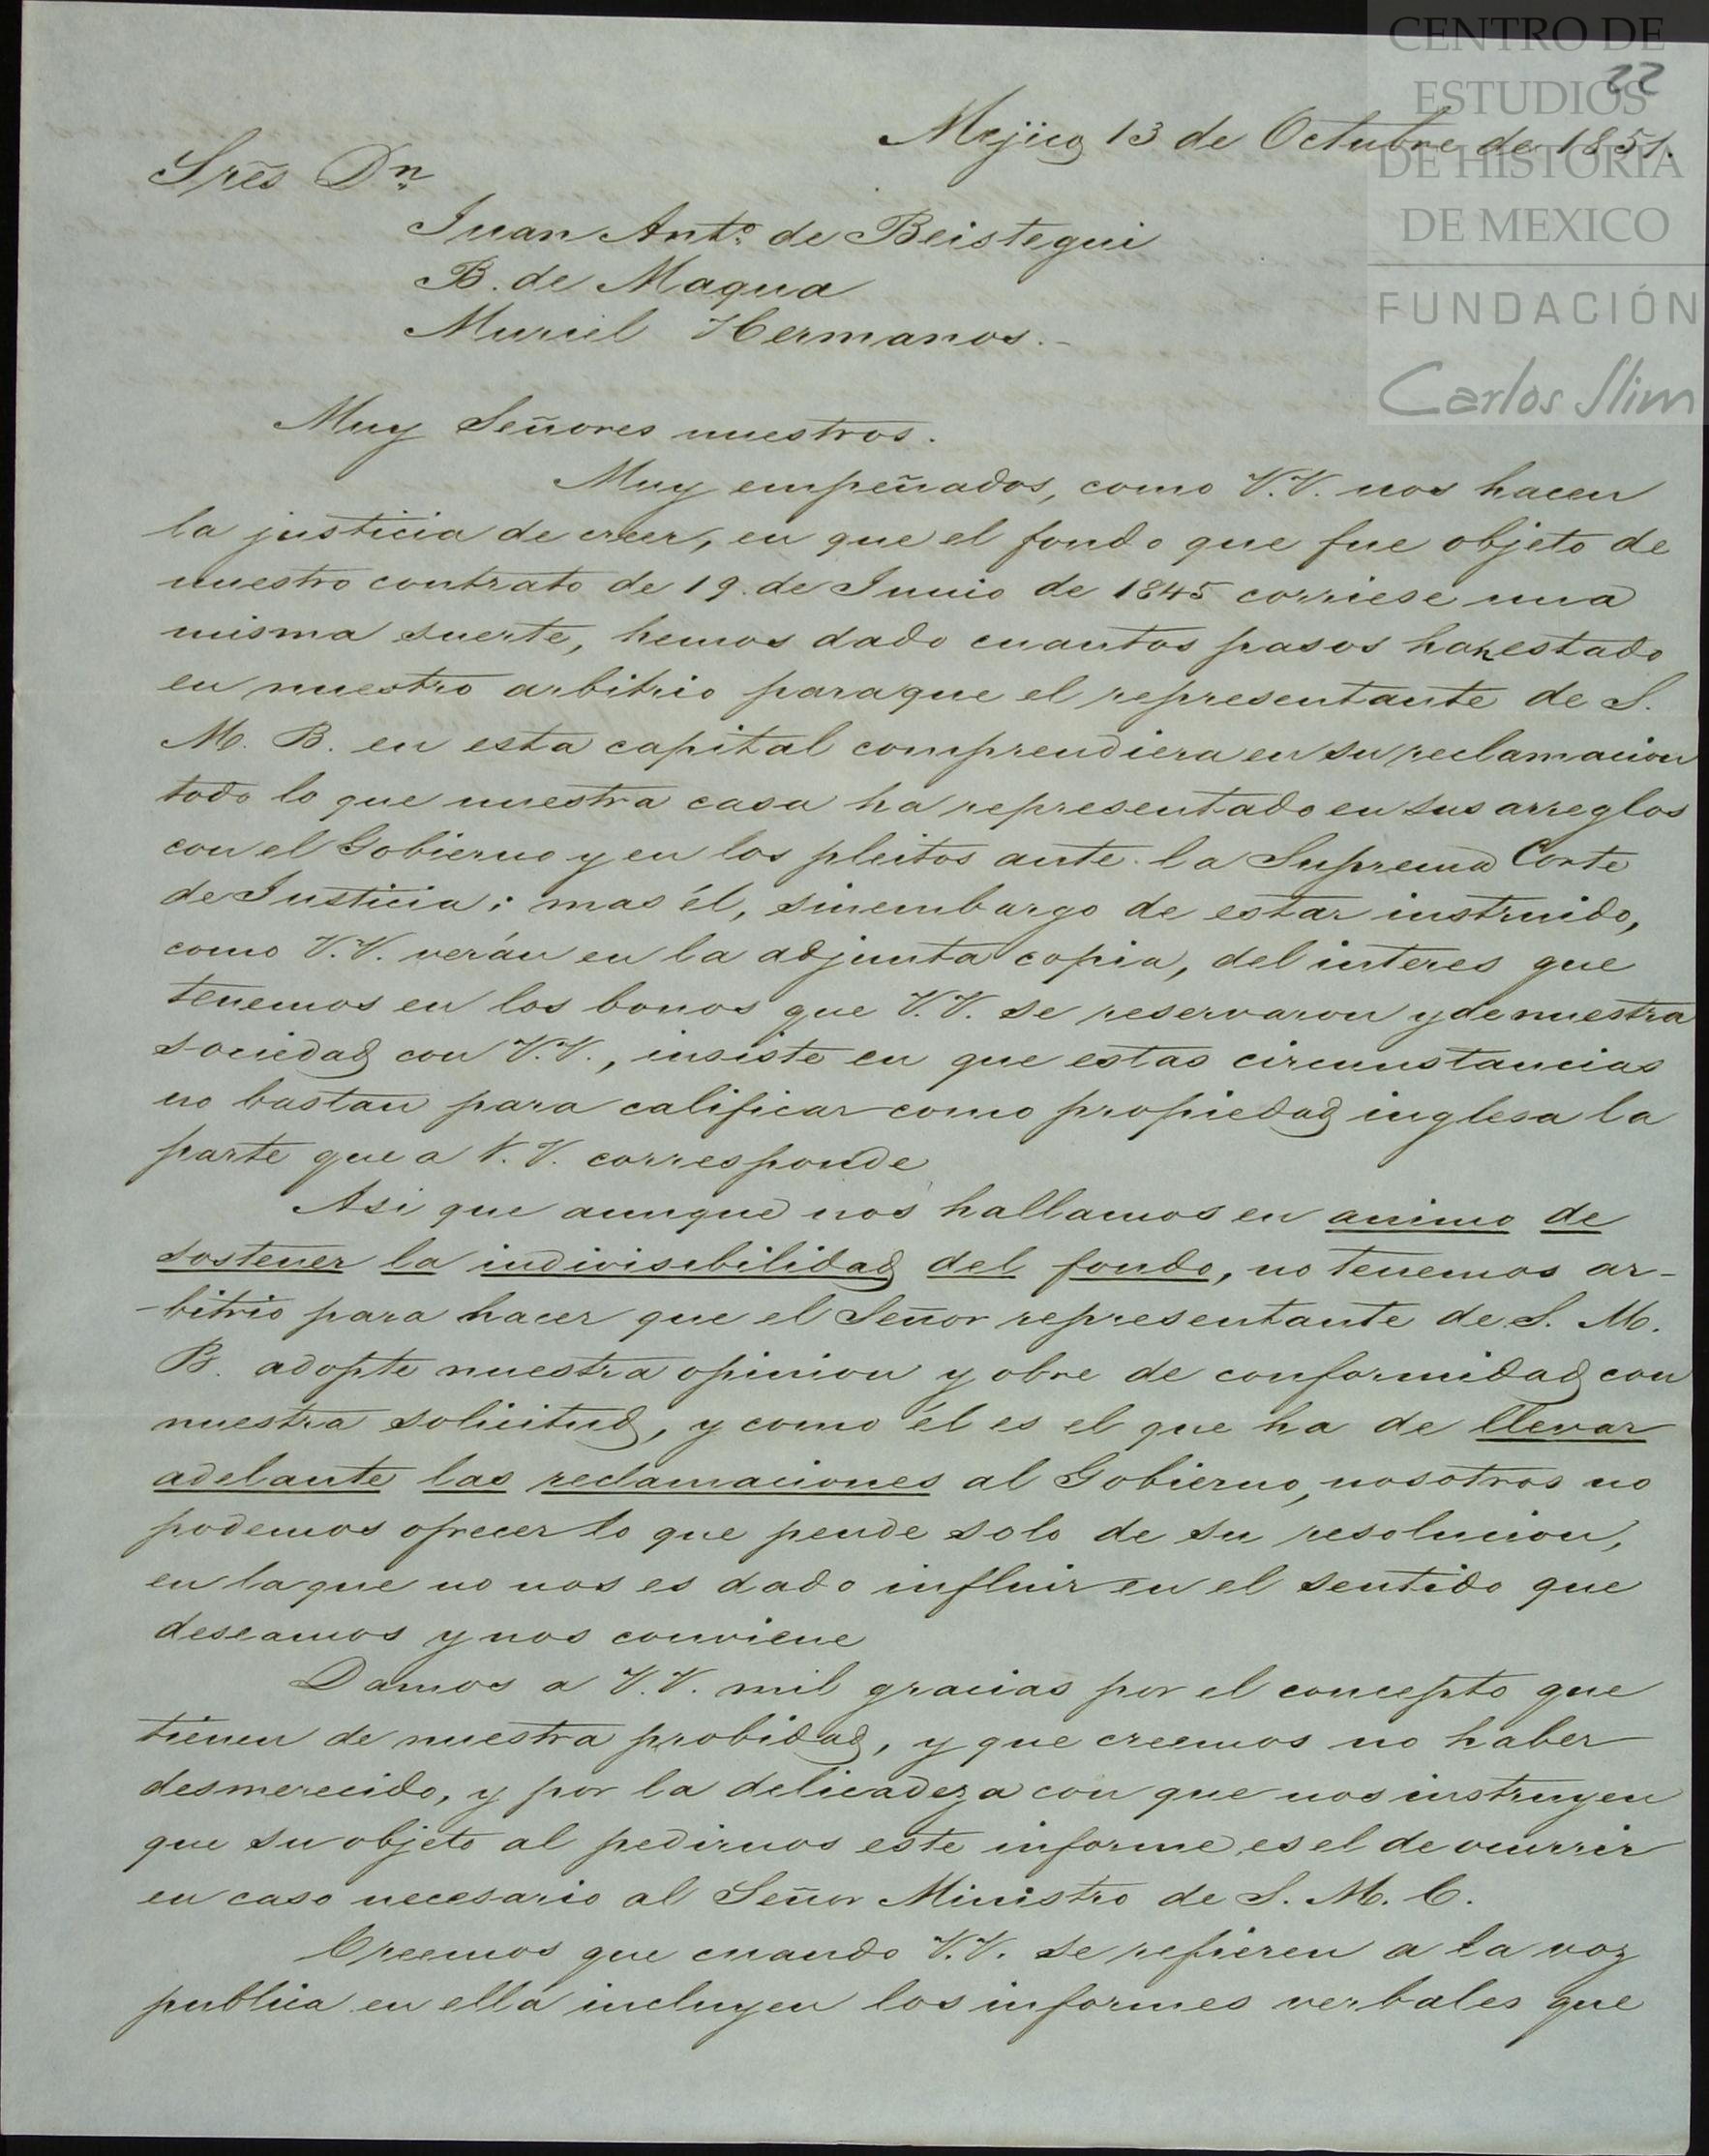 CENTRO DE
ESTUDIOS
DE HISTORIA
DE MEXICO
FUNDACIÓN
Carlos Slim
22
Mejico 13 de Octubre de 1851.
Sres Dn
Juan Anto. de Beistegui
B. de Maqua
Muriel Hermanos.-
Muy Señores nuestros.
Muy empeñados, como V.V. nos hacen
la justicia de creer, en que el fondo que fue objeto de
nuestro contrato de 19. de Junio de 1845 corriese una
misma suerte, hemos dado cuantos pasos han estado
en nuestro arbitrio paraque el representante de S.
M. B. en esta capital comprendiera en su reclamacion
todo lo que nuestra casa ha representado en sus arreglos
con el Gobierno y en los pleitos ante la Suprema Corte
de Justicia; mas él, sinembargo de estar instruido,
como V.V. verán en la adjunta copia, del interes que
tenemos en los bonos que V.V. se reservaron y de nuestra
sociedad con V.V., insiste en que estas circunstancias
no bastan para calificar como propiedad inglesa la
parte que a V.V. corresponde
Asi que aunque nos hallamos en animo de
sostener la indivisibilidad del fondo, no tenemos ar-
-bitrio para hacer que el Señor representante de S. M.
B. adopte nuestra opinion y obre de conformidad con
nuestra solicitud, y como él es el que ha de llevar
adelante las reclamaciones al Gobierno, nosotros no
podemos ofrecer lo que pende solo de su resolucion,
en la que no nos es dado influir en el sentido que
deseamos y nos conviene
Damos a V.V. mil gracias por el concepto que
tienen de nuestra probidad, y que creemos no haber
desmerecido, y por la delicadeza con que nos instruyen
que su objeto al pedirnos este informe, es el de ocurrir
en caso necesario al Señor Ministro de S. M. C.
Creemos que cuando V.V. se refieren a la voz
publica en ella incluyen los informes verbales que